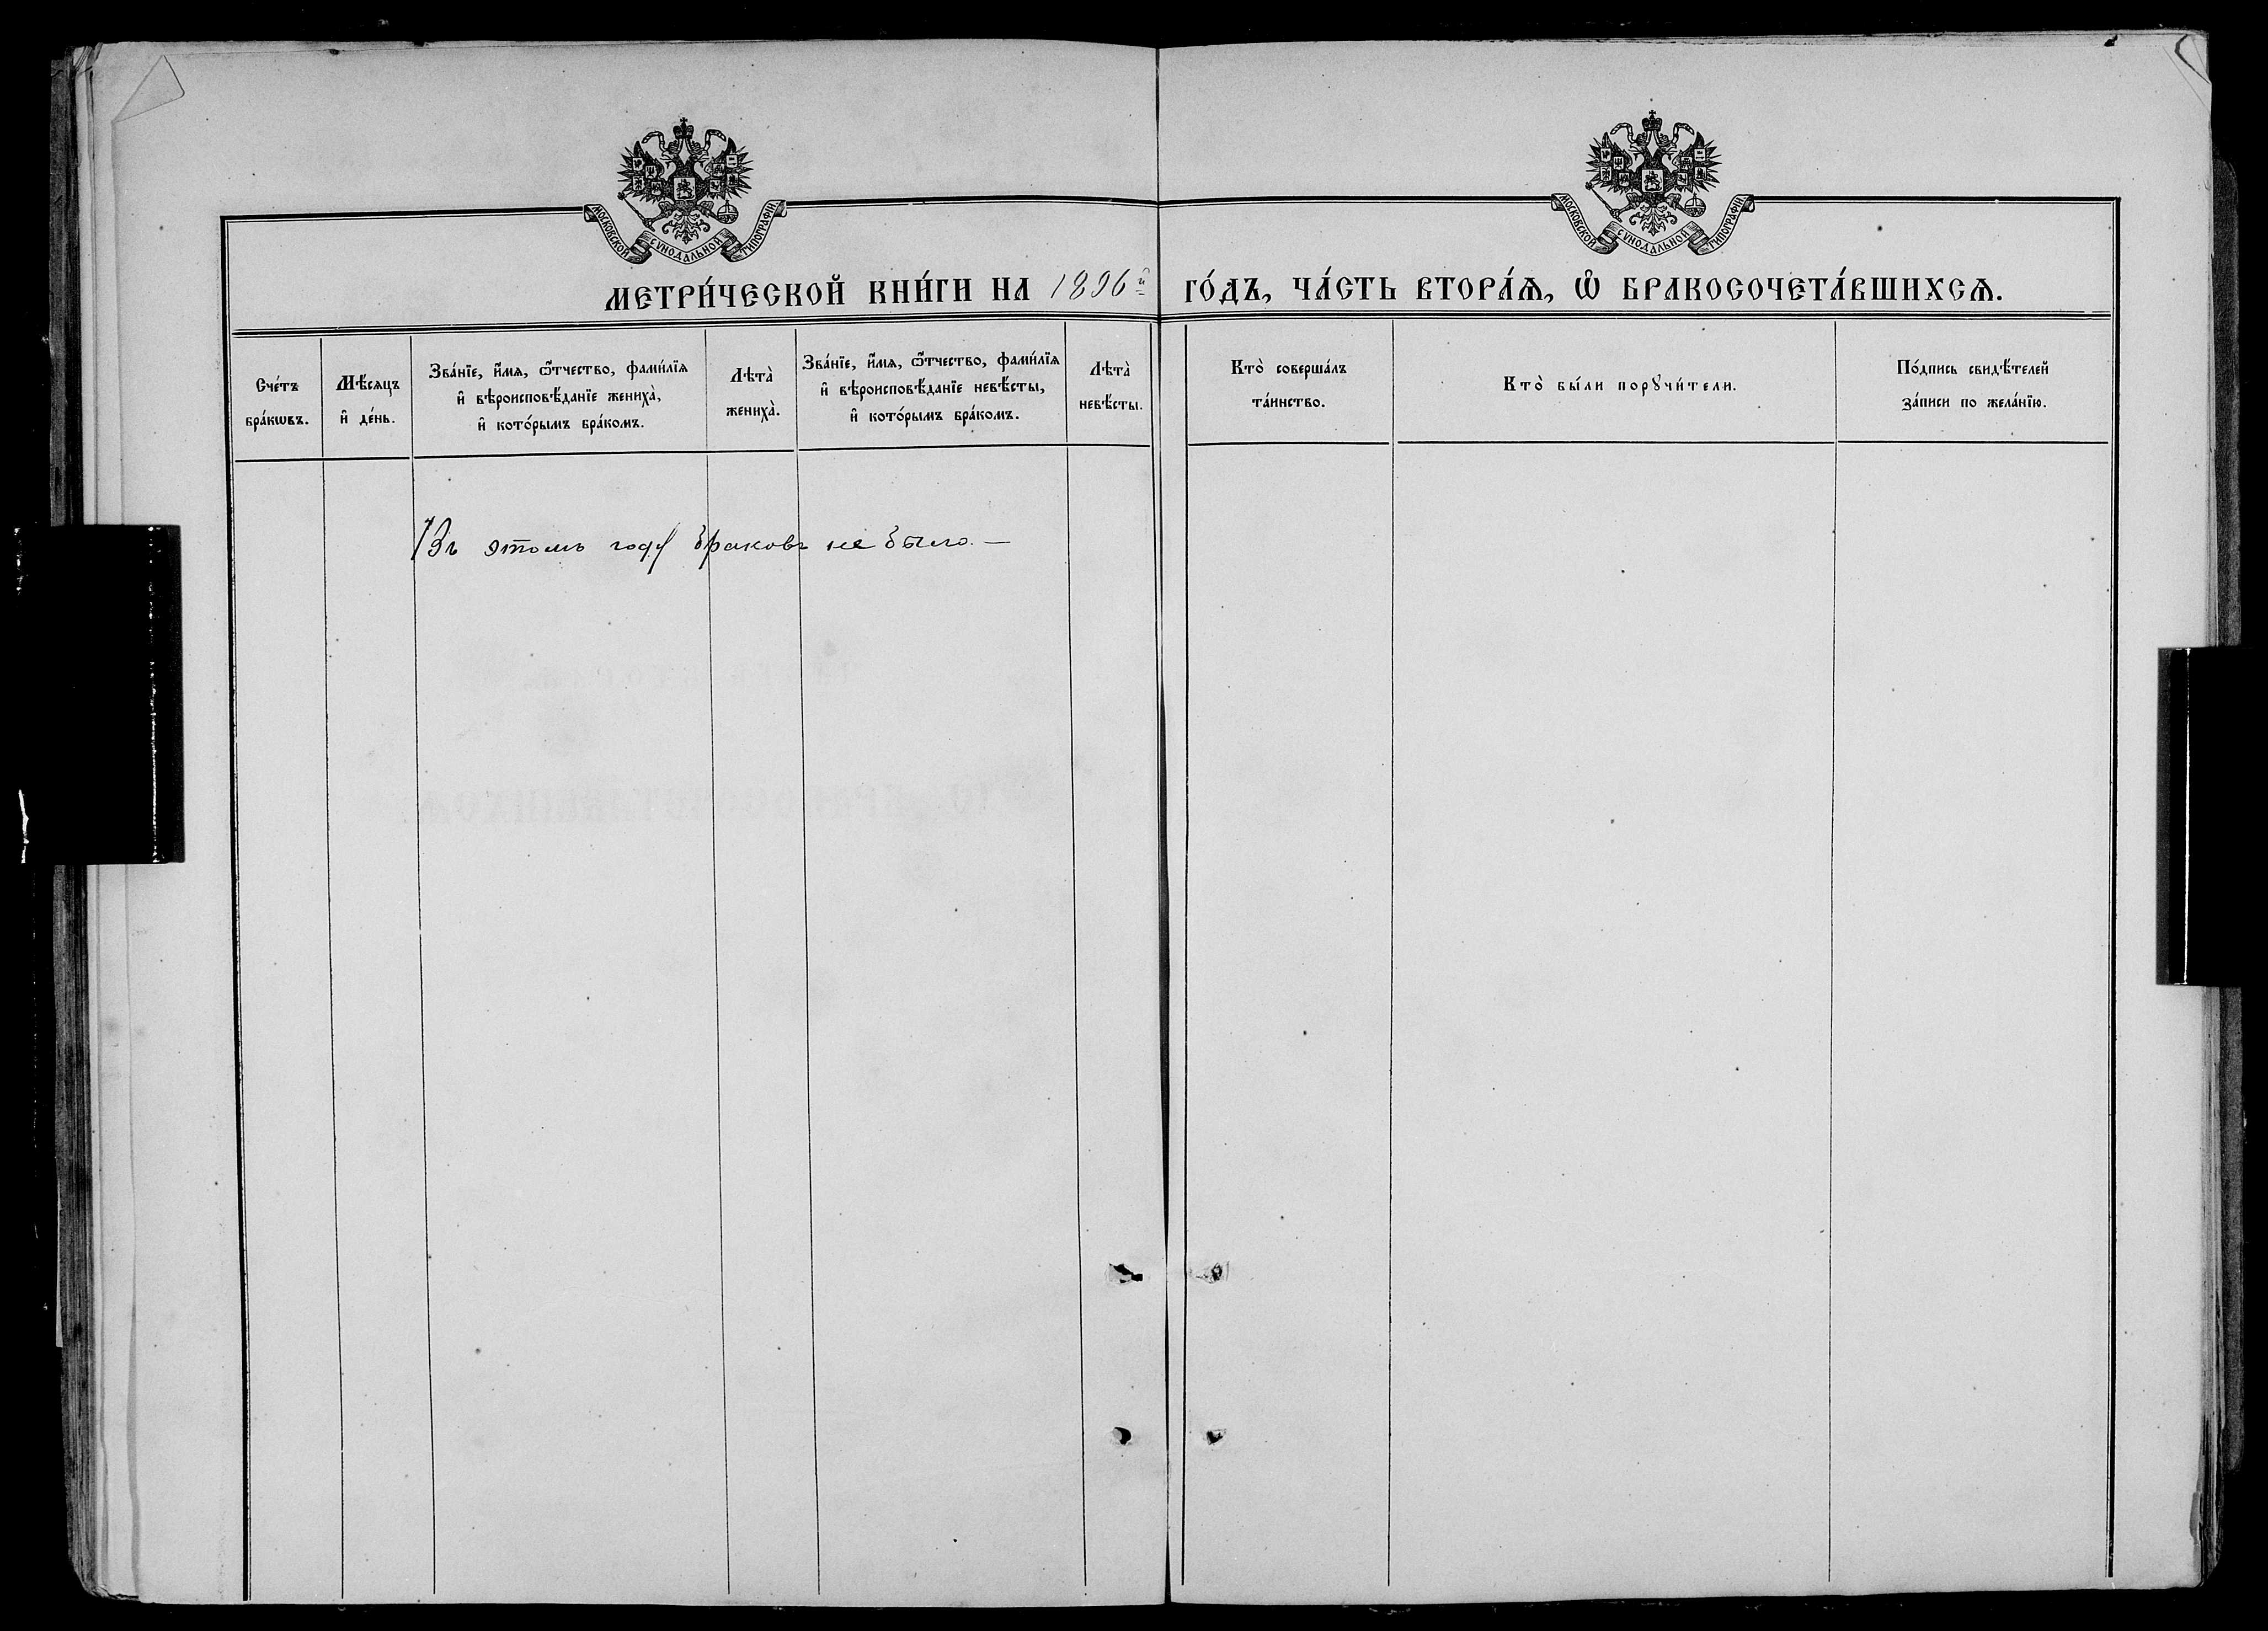 МОСКОВСКОЙ СѴНОДАЛЬНОЙ ТИПОГРАФІИ
МОСКОВСКОЙ СѴНОДАЛЬНОЙ ТИПОГРАФІИ
МЕТРИ́ЧЕСКОЙ КНИ́ГИ НА 1896й ГО́ДЪ, ЧА́СТЬ ВТОРА́Ѧ, Ѽ БРАКОСОЧЕТА́ВШИХСѦ.
Сче́тъ
бра́кѡвъ.
Мѣ́сѧцъ
и҆ де́нь.
Зва́нїе, и҆́мѧ, ѻ҆́тчество, фами́лїѧ
и҆ вѣроисповѣ́данїе жениха̀,
и҆ кото́рымъ бра́комъ.
Лѣта̀
жениха̀.
Зва́нїе, и҆́мѧ, ѻ҆́тчество, фами́лїѧ
и҆ вѣроисповѣ́данїе невѣ́сты,
и҆ кото́рымъ бра́комъ.
Лѣта̀
невѣ́сты.
Кто̀ соверша́лъ
та́инство.
Кто̀ бы́ли порꙋчи́тели.
По́дпись свидѣ́телей
за́писи по жела́нїю.
Въ этомъ году браковъ не было. —